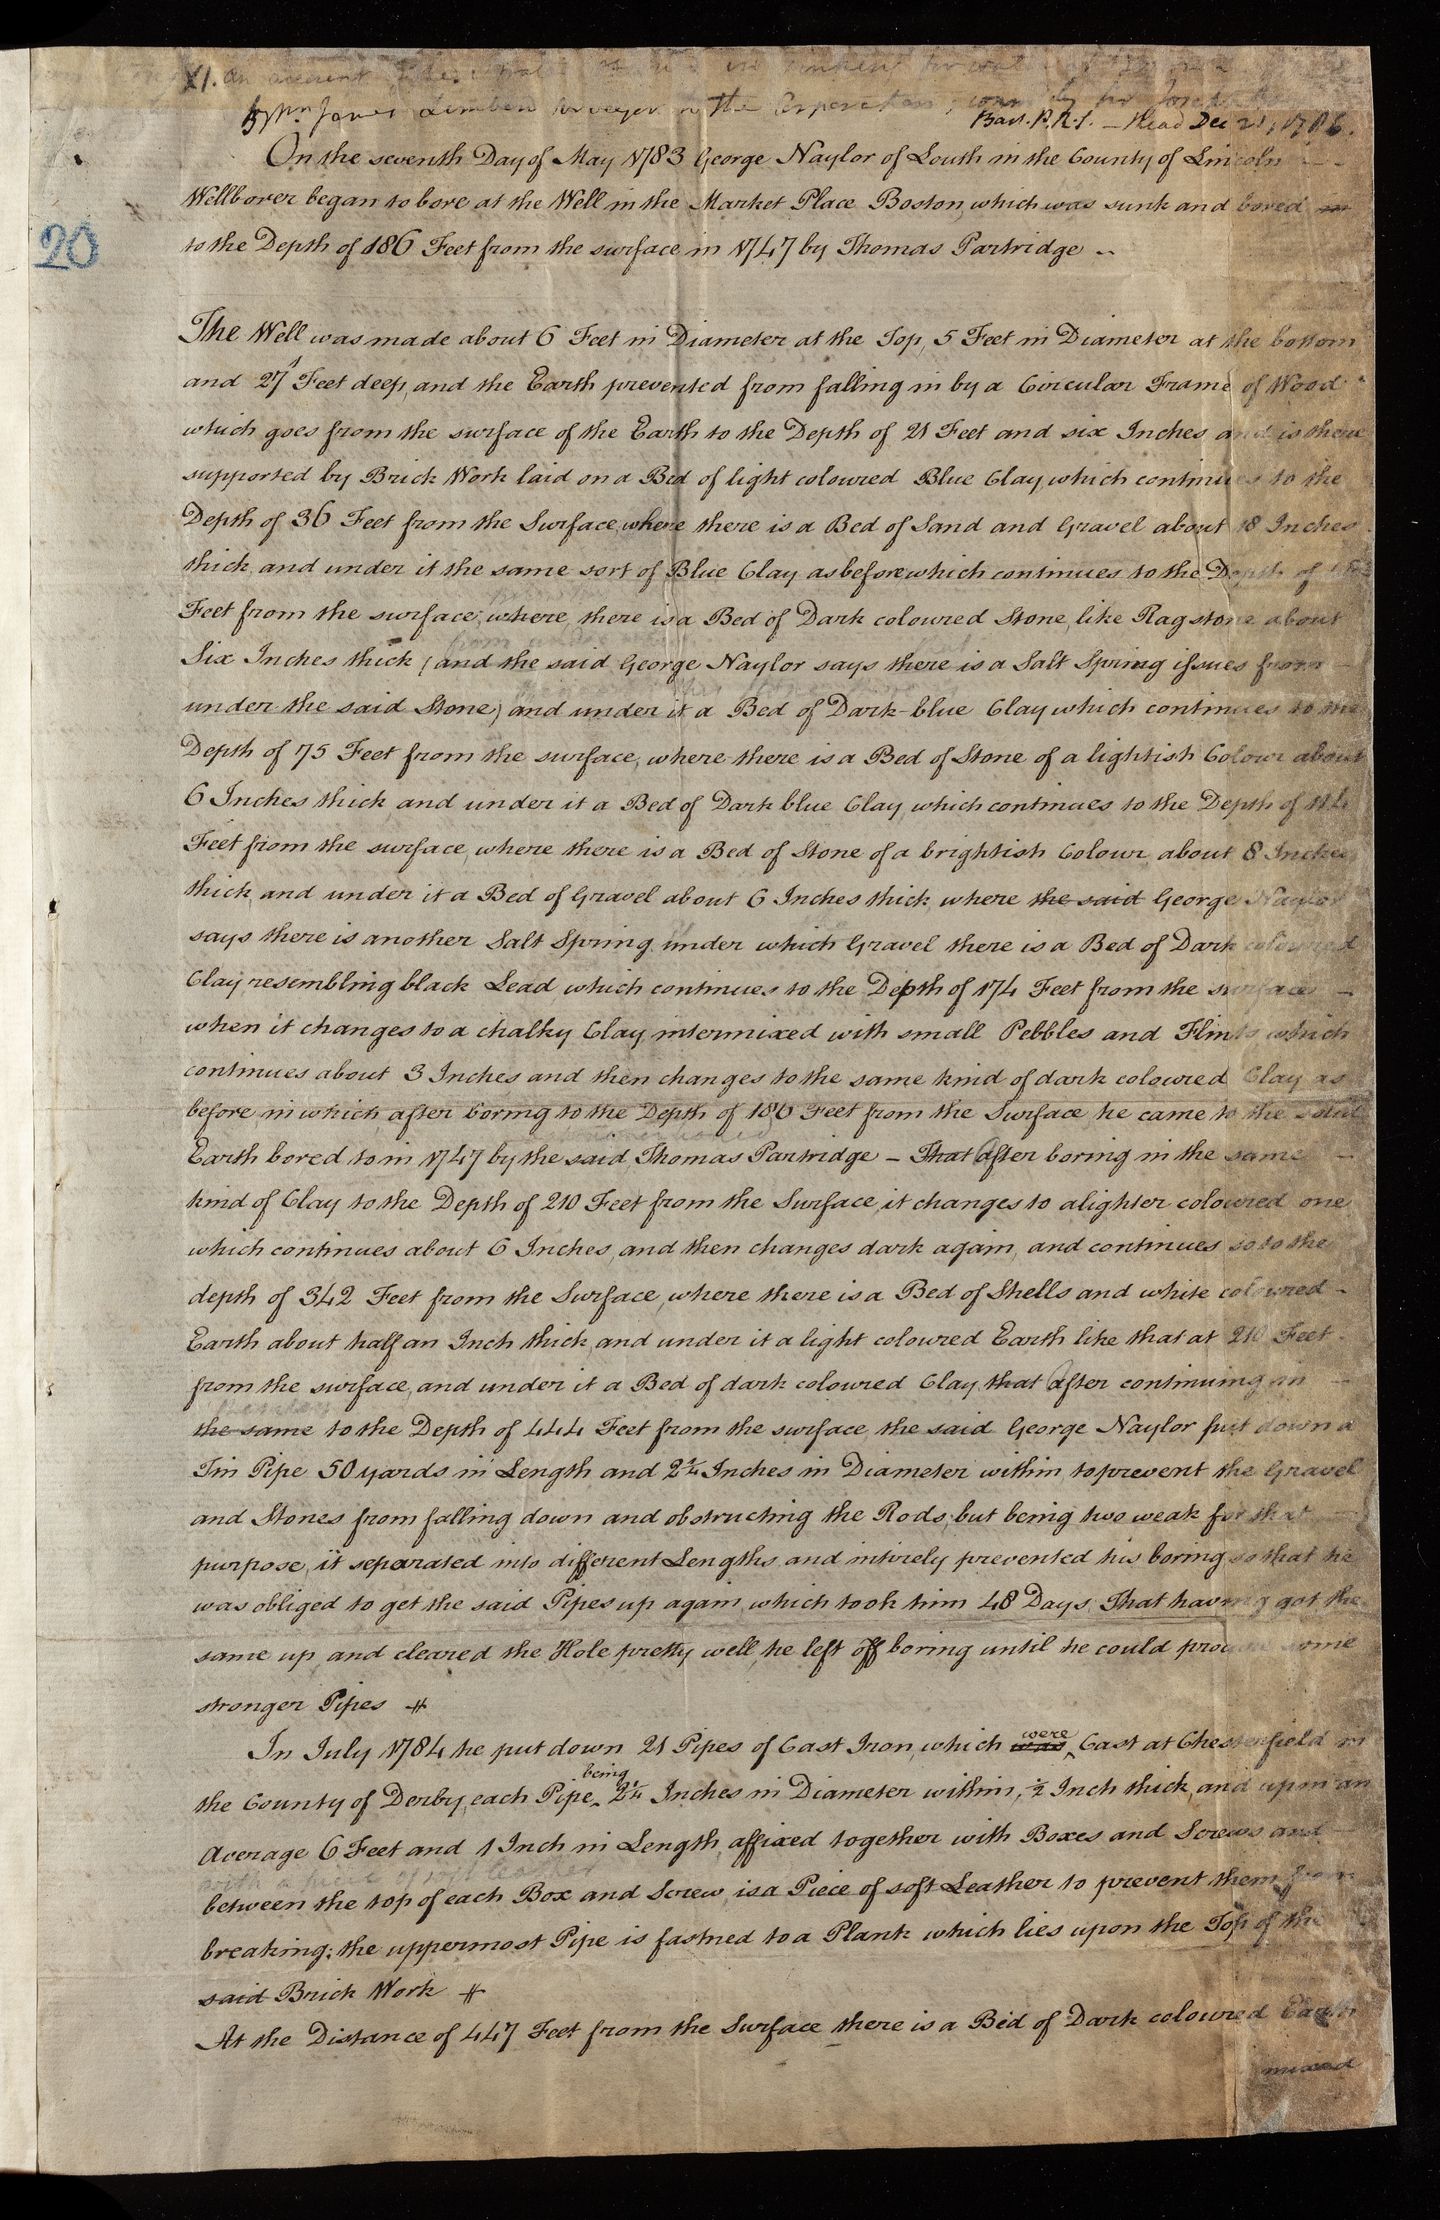 XI. An account
by Mr. James Limbird Surveyor to the Corporation; comm. by Sir Joseph
Bar. P.R.S. — Read Dec 21, 1786.
20
On the seventh Day of May 1783 George Naylor of Louth in the County of Lincoln
Wellborer began to bore at the Well in the Market Place Boston, which was sunk and bored
to the Depth of 186 Feet from the surface in 1747 by Thomas Partridge ~
The Well was made about 6 Feet in Diameter at the Top, 5 Feet in Diameter at the bottom
and 27 Feet deep, and the Earth prevented from falling in by a Circular Frame of Wood
which goes from the surface of the Earth to the Depth of 21 Feet and six Inches and is there
supported by Brick Work laid on a Bed of light coloured Blue Clay, which continues to the
Depth of 36 Feet from the Surface, where there is a Bed of Sand and Gravel about 18 Inches
thick, and under it the same sort of Blue Clay as before which continues to the Depth of
Feet from the surface, where, there is a Bed of Dark coloured Stone, like Ragstone about
Six Inches thick, (and the said George Naylor says there is a Salt Spring issues from —
under the said Stone,) and under it a Bed of Dark-blue Clay which continues to the
Depth of 75 Feet from the surface, where there is a Bed of Stone of a lightish Colour about
6 Inches thick, and under it a Bed of Dark blue Clay, which continues to the Depth of 114
Feet from the surface, where there is a Bed of Stone of a brightish Colour, about 8 Inches
thick, and under it a Bed of Gravel about 6 Inches thick, where the said George Naylor
says there is another Salt Spring, under which Gravel there is a Bed of Dark coloured
Clay, resembling black Lead which continues to the Depth of 174 Feet from the surface —
when it changes to a chalky Clay, intermixed with small Pebbles and Flints which
continues about 3 Inches and then changes to the same kind of dark coloured Clay as
before, in which after boring to the Depth of 186 Feet from the Surface, he came to the solid
Earth bored to in 1747 by the said Thomas Partridge — That After boring in the same —
kind of Clay to the Depth of 210 Feet from the Surface, it changes to a lighter coloured one
which continues about 6 Inches, and then changes dark again, and continues so to the
depth of 342 Feet from the Surface, where there is a Bed of Shells and white coloured —
Earth about half an Inch thick, and under it a light coloured Earth like that at 210 Feet
from the surface, and under it a Bed of dark coloured Clay, that After continuing in —
the same to the Depth of 444 Feet from the surface, the said George Naylor put down a
Tin Pipe 50 yards in Length and 2¼ Inches in Diameter within, to prevent the Gravel
and Stones from falling down and obstructing the Rods, but being two weak for that
purpose, it separated into different Lengths, and intirely prevented his boring so that he
was obliged to get the said Pipes up again, which took him 48 Days. That having got the
same up, and cleared the Hole pretty well, he left off boring until he could procure some
stronger Pipes
In July 1784 he put down 21 Pipes of Cast Iron, which was were Cast at Chesterfield in
the County of Derby, each Pipe being 2¼ Inches in Diameter within, ½ Inch thick, and upon an
Average 6 Feet and 1 Inch in Length, affixed together with Boxes and Screws and
with a piece of soft leather
between the top of each Box and Screw, is a Piece of soft Leather to prevent them from
breaking; the uppermost Pipe is fastned to a Plank which lies upon the Top of the
said Brick Work
At the Distance of 447 Feet from the Surface there is a Bed of Dark coloured Earth
mixed